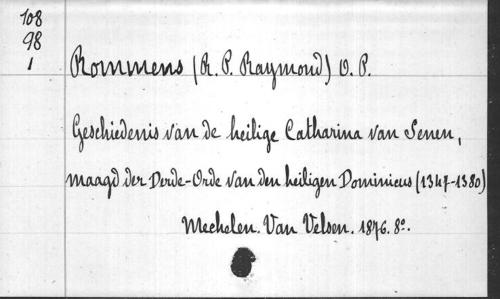 108
98
1
Rommens (R. P. Raymond) O. P.
Geschiedenis van de heilige Catharina van Senen,
maagd der Derde-Orde van den heiligen Dominicus (1347-1380)
Mechelen. Van Velsen. 1876. 8º.